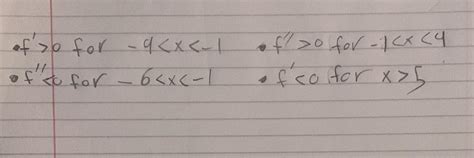 • f'>0 for -9<x<-1 • f''>0 for -1<x<4
• f''<0 for -6<x<-1 • f'<0 for x>5